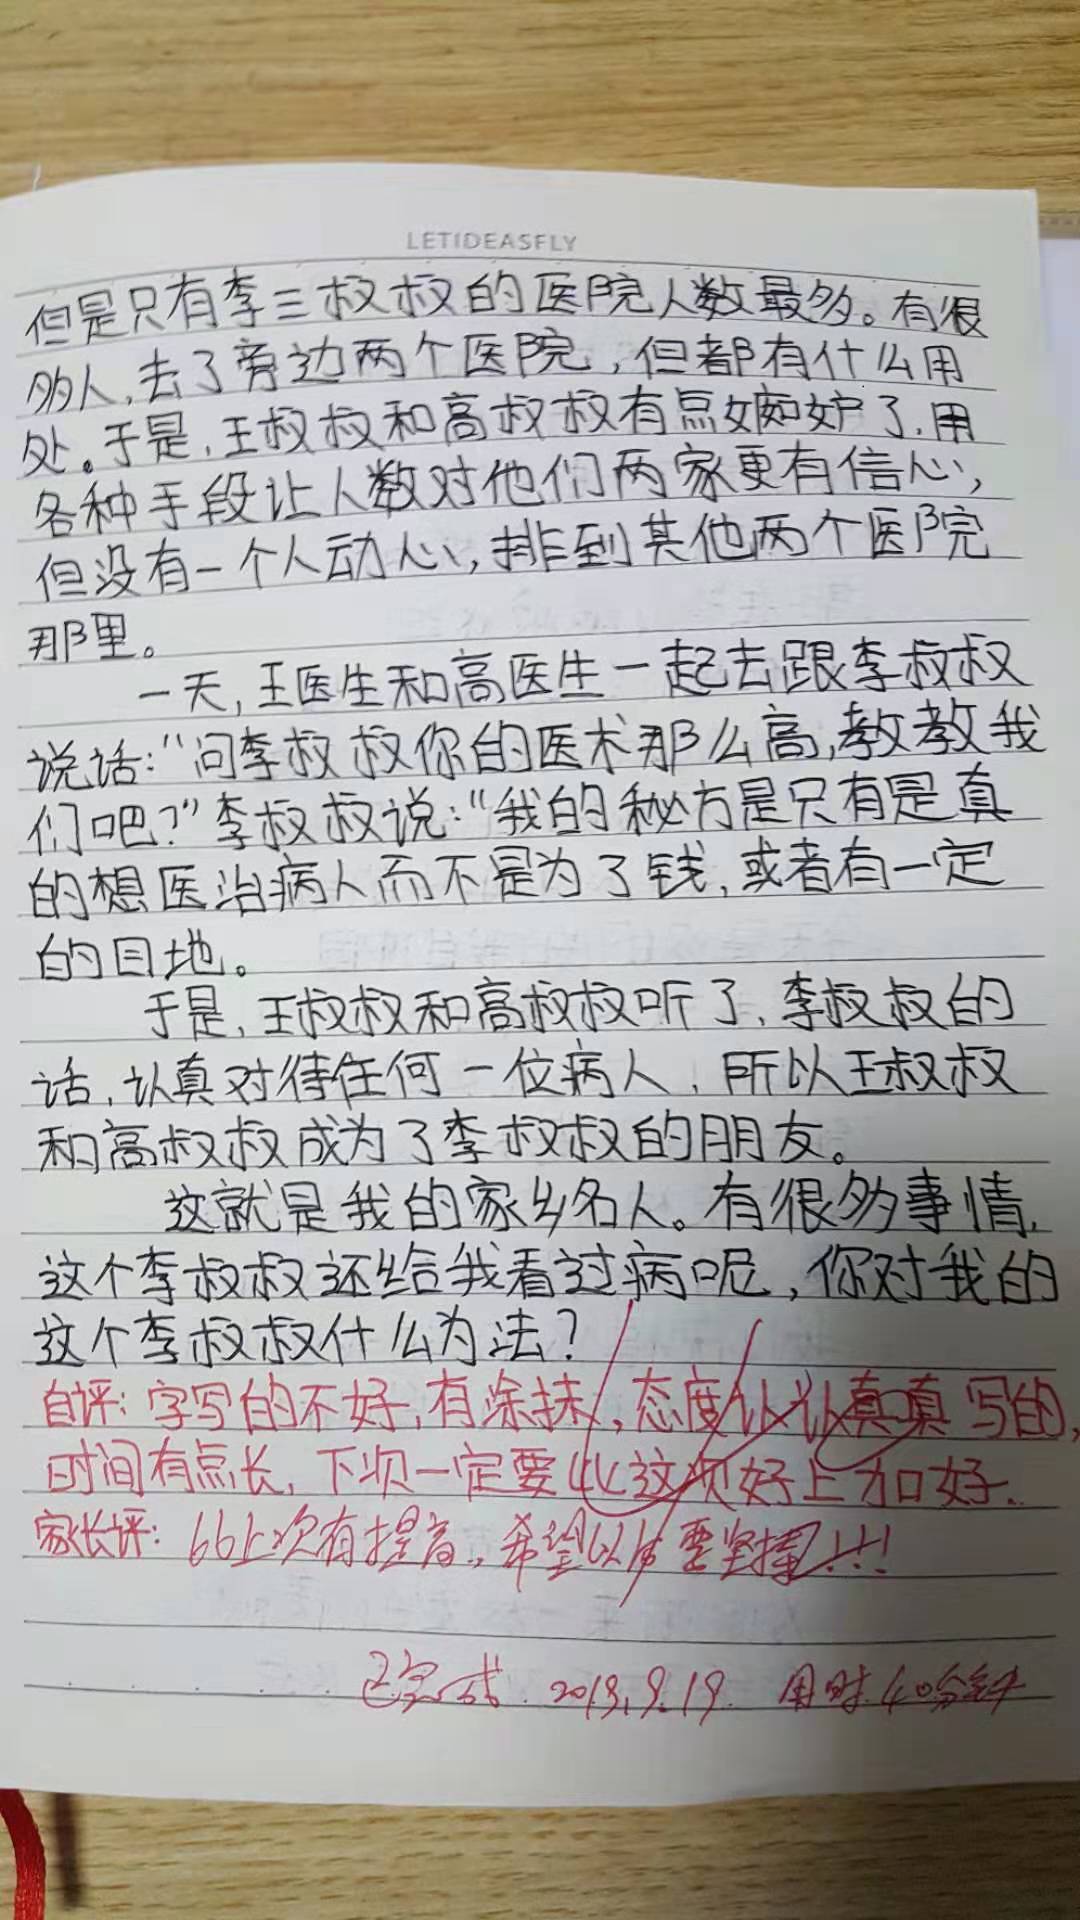 LETIDEASFLY
但是只有李三叔叔的医院人数最多。有很
多人,去了旁边两个医院,但都有什么用
处。于是,王叔叔和高叔叔有点嫉妒了,用
各种手段让人数对他们两家更有信心,
但没有一个人动心,排到其他两个医院
那里。
一天,王医生和高医生一起去跟李叔叔
说话:“问李叔叔你的医术那么高,教教我
们吧?”李叔叔说:“我的秘方是只有是真
的想医治病人而不是为了钱,或者有一定
的目地。
于是,王叔叔和高叔叔听了,李叔叔的
话,认真对待任何一位病人,所以王叔叔
和高叔叔成为了李叔叔的朋友。
这就是我的家乡名人。有很多事情,
这个李叔叔还给我看过病呢,你对我的
这个李叔叔什么为法?
自评:字写的不好,有涂抹,态度认认真真写的,
时间有点长,下次一定要比这次好上加好.
家长评:比上次有提高,希望以后要坚持!!!
已完成 2019.9.19 用时40分钟